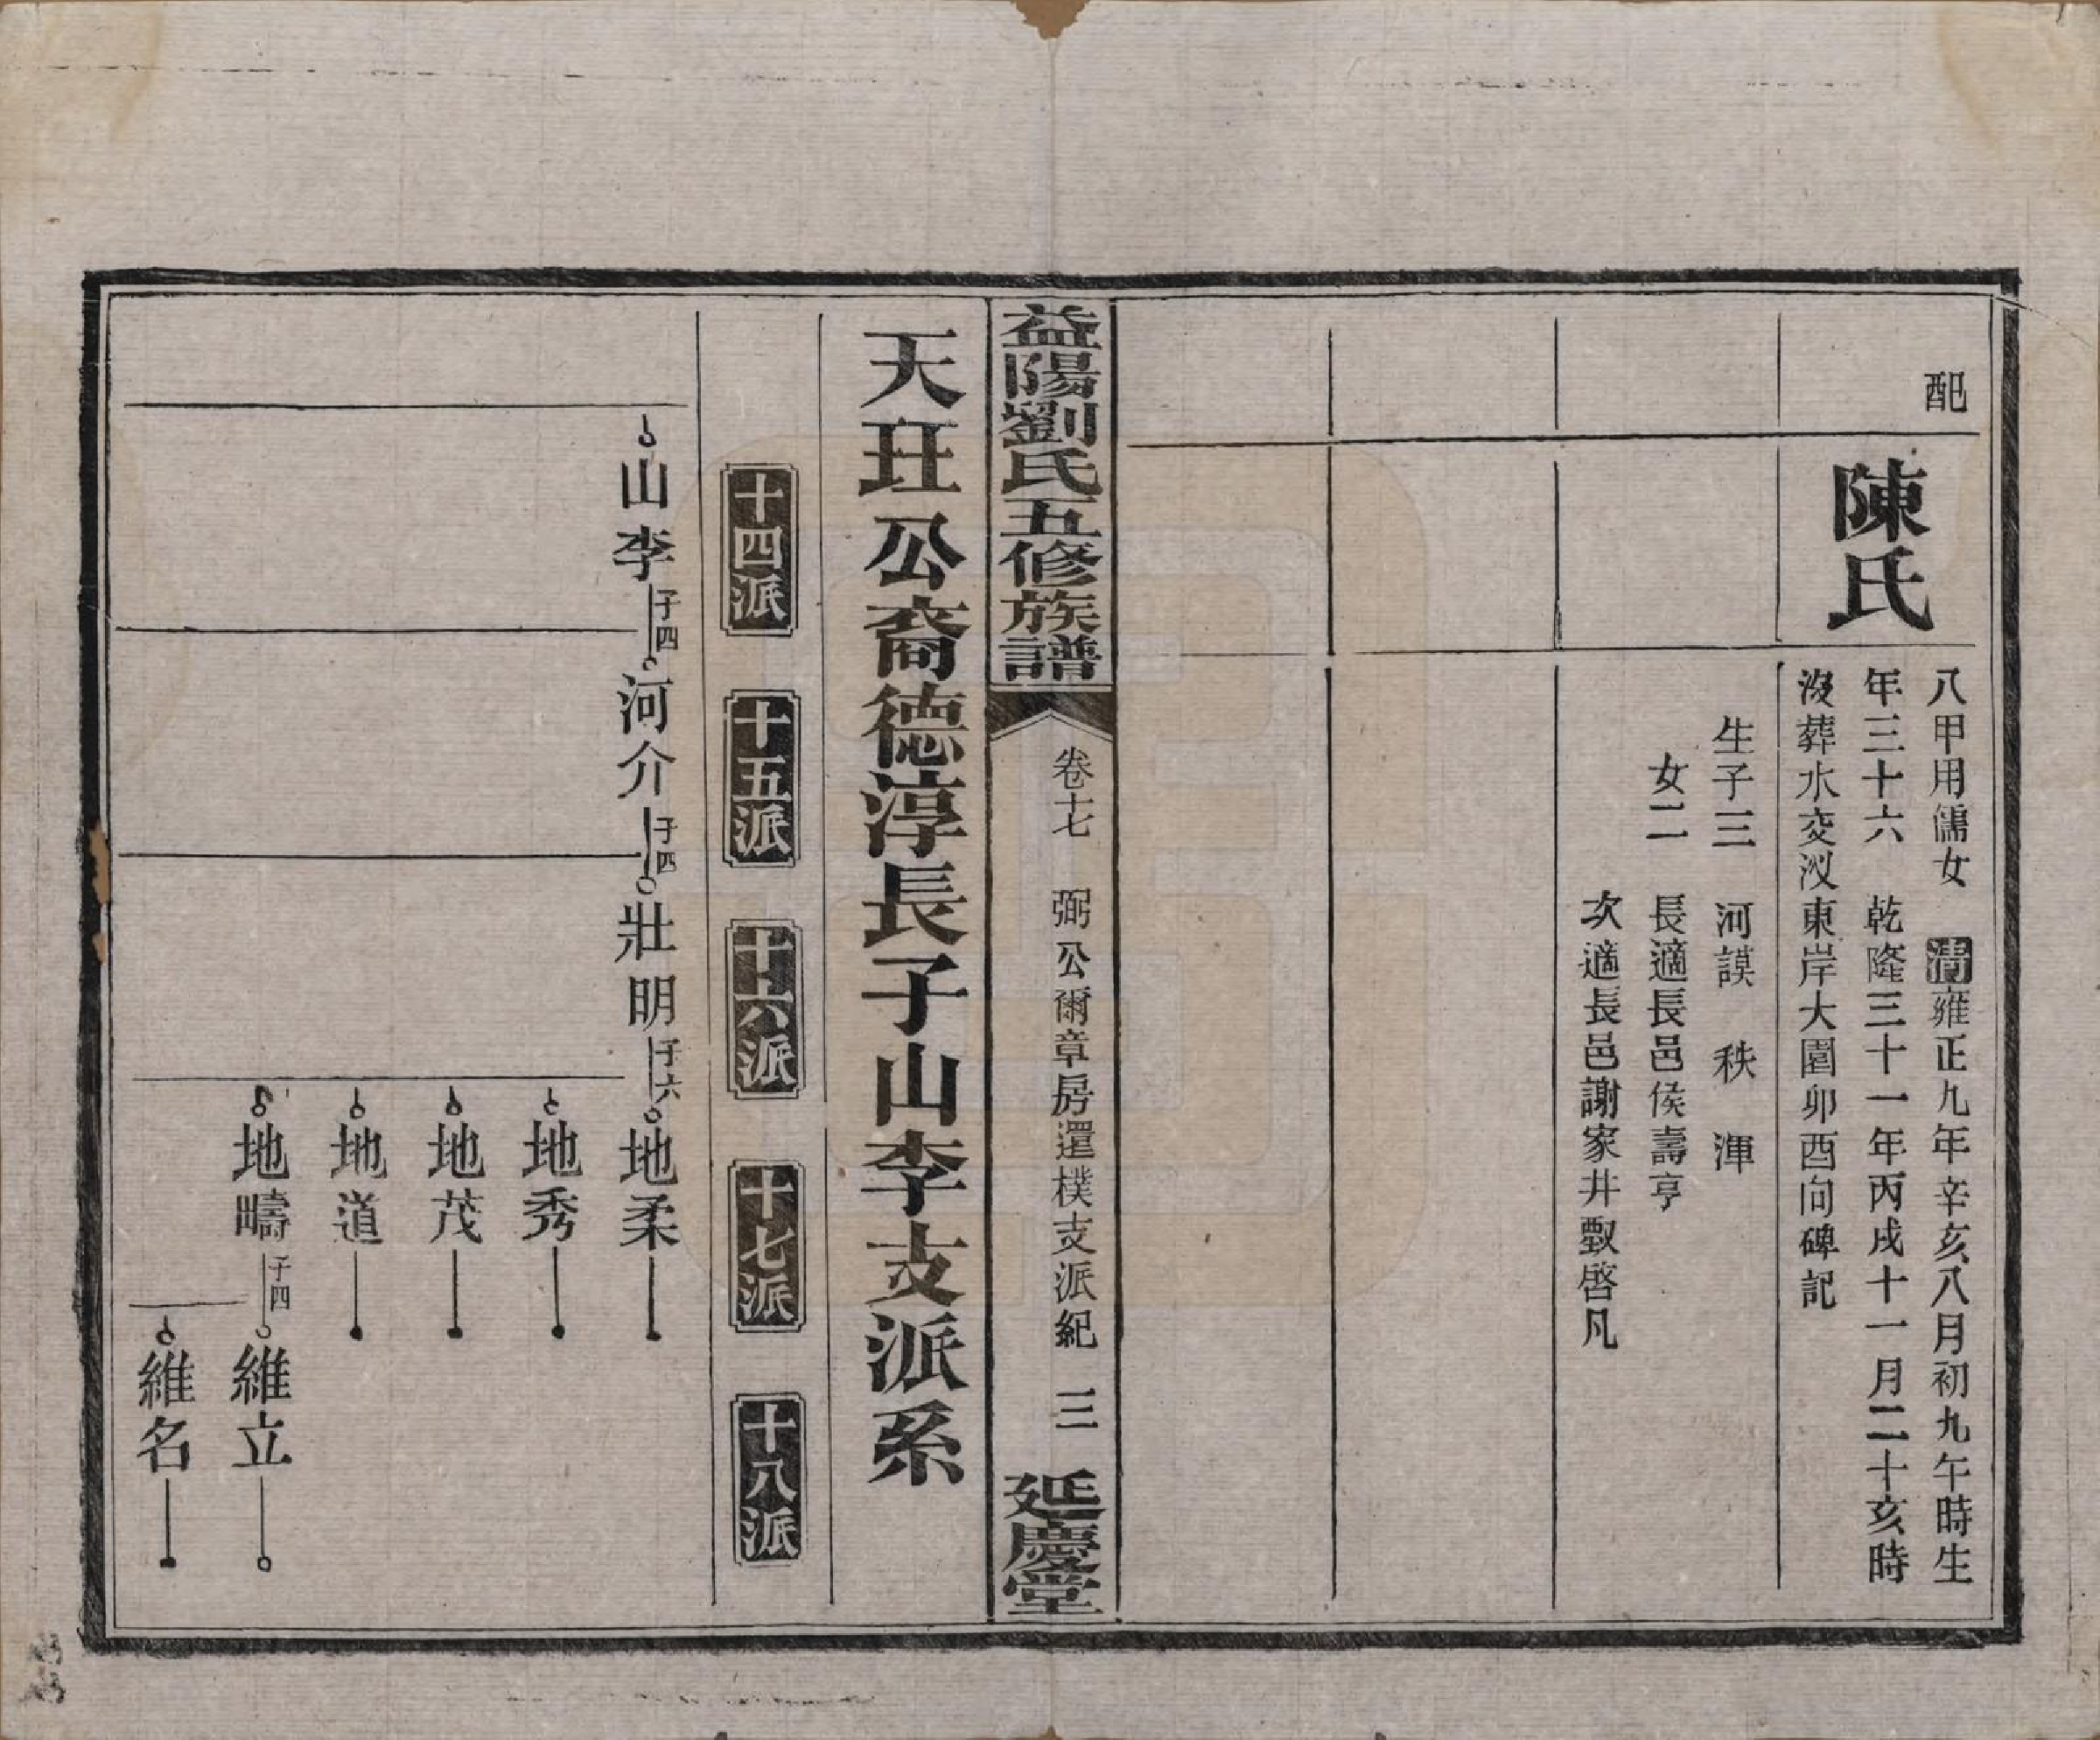 配
陳氏
八甲用儒女 清雍正九年辛亥八月初九午時生
年三十六 乾隆三十一年丙戌十一月二十亥時
沒葬水交汊東岸大園卯酉向碑記
生子三 河謨 秩 渾
女二 長適長邑侯壽亨
次適長邑謝家井甄啓凡
益陽劉氏五修族譜
卷十七 弼公爾章房還樸支派紀 三
延慶堂
天玨公裔德淳長子山李支派系
十四派 十五派 十六派 十七派 十八派
山李 子四 河介 子四 壯明 子六 地柔
地秀
地茂
地道
地疇 子四 維立
維名